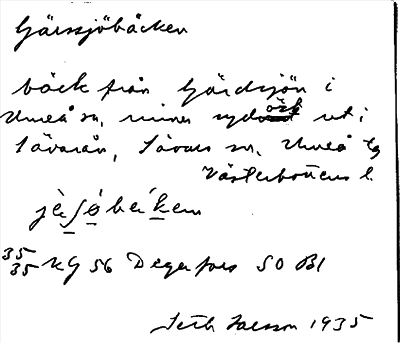 Gärssjöbäcken
bäck från Gärdsjön i
Umeå sn, rinner sydöst ut i
Sävarån, Sävars sn, Umeå tg
Västerbottens l.
35
35 KG 56 Degerfors SO Bl
Seth 1935